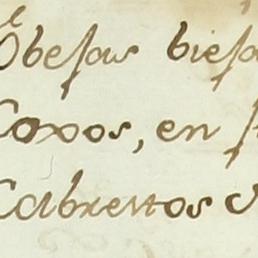 Obejas bieja
Coxos, en
Cabrettos